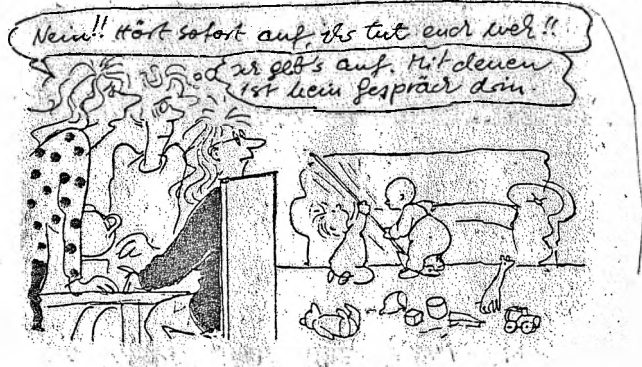 Nein!! Hört sofort auf, ihr tut euch weh!!
Ich geb's auf. Mit denen
ist kein Gespräch drin.